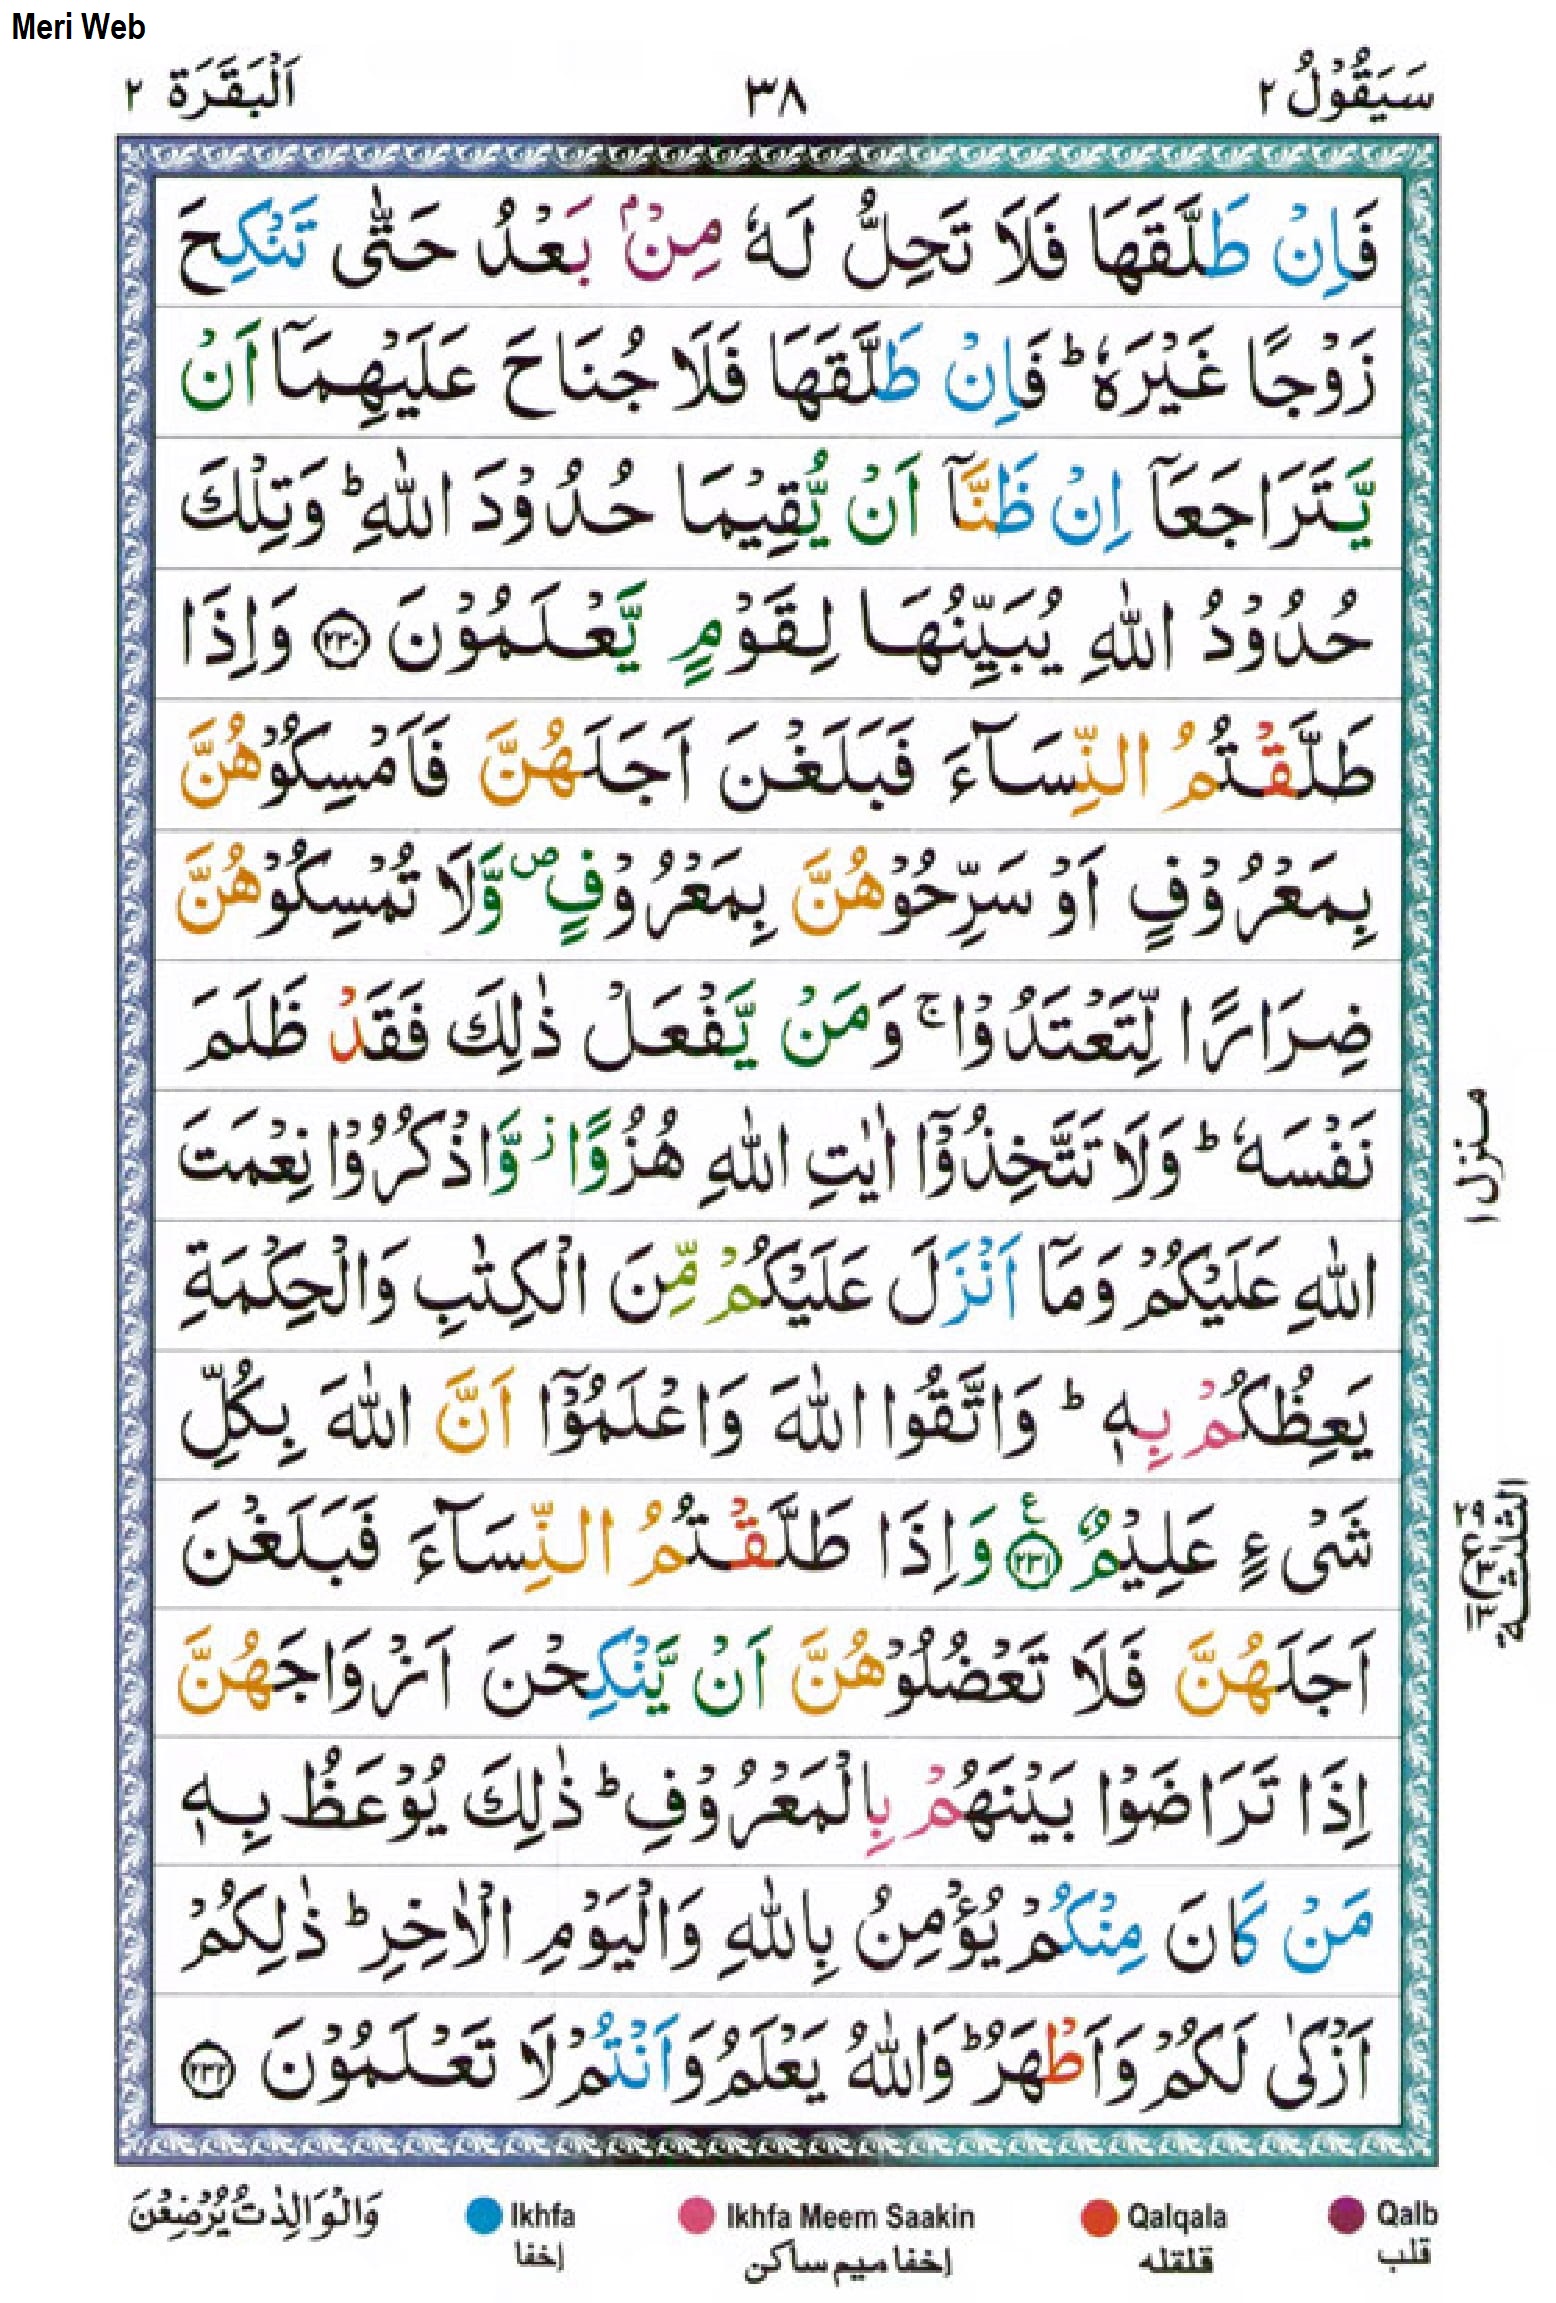 Meri Web
سَيَقُوْلُ ٢
٣٨
اَلْبَقَرَة ٢
فَاِنْ طَلَّقَهَا فَلَا تَحِلُّ لَهٗ مِنْۢ بَعْدُ حَتّٰى تَنْكِحَ
زَوْجًا غَيْرَهٗ ؕ فَاِنْ طَلَّقَهَا فَلَا جُنَاحَ عَلَيْهِمَاۤ اَنْ
يَّتَرَاجَعَاۤ اِنْ ظَنَّاۤ اَنْ يُّقِيْمَا حُدُوْدَ اللّٰهِ ؕ وَتِلْكَ
حُدُوْدُ اللّٰهِ يُبَيِّنُهَا لِقَوْمٍ يَّعْلَمُوْنَ ﴿۲۳۰﴾ وَاِذَا
طَلَّقْتُمُ النِّسَآءَ فَبَلَغْنَ اَجَلَهُنَّ فَاَمْسِكُوْهُنَّ
بِمَعْرُوْفٍ اَوْ سَرِّحُوْهُنَّ بِمَعْرُوْفٍ ۪ وَّلَا تُمْسِكُوْهُنَّ
ضِرَارًا لِّتَعْتَدُوْا ۚ وَمَنْ يَّفْعَلْ ذٰلِكَ فَقَدْ ظَلَمَ
نَفْسَهٗ ؕ وَلَا تَتَّخِذُوْۤا اٰيٰتِ اللّٰهِ هُزُوًا ؗ وَّاذْكُرُوْا نِعْمَتَ
اللّٰهِ عَلَيْكُمْ وَمَاۤ اَنْزَلَ عَلَيْكُمْ مِّنَ الْكِتٰبِ وَالْحِكْمَةِ
يَعِظُكُمْ بِهٖ ؕ وَاتَّقُوا اللّٰهَ وَاعْلَمُوْۤا اَنَّ اللّٰهَ بِكُلِّ
شَىْءٍ عَلِيْمٌ ﴿۲۳۱﴾ ع وَاِذَا طَلَّقْتُمُ النِّسَآءَ فَبَلَغْنَ
اَجَلَهُنَّ فَلَا تَعْضُلُوْهُنَّ اَنْ يَّنْكِحْنَ اَزْوَاجَهُنَّ
اِذَا تَرَاضَوْا بَيْنَهُمْ بِالْمَعْرُوْفِ ؕ ذٰلِكَ يُوْعَظُ بِهٖ
مَنْ كَانَ مِنْكُمْ يُؤْمِنُ بِاللّٰهِ وَالْيَوْمِ الْاٰخِرِ ؕ ذٰلِكُمْ
اَزْكٰى لَكُمْ وَاَطْهَرُ ؕ وَاللّٰهُ يَعْلَمُ وَاَنْتُمْ لَا تَعْلَمُوْنَ ﴿۲۳۲﴾
منزل ١
الثلٰثة
٢٩
ع
٣
١٣
وَالْوَالِدٰتُ يُرْضِعْنَ
Ikhfa
إخفا
Ikhfa Meem Saakin
إخفا ميم ساكن
Qalqala
قلقله
Qalb
قلب